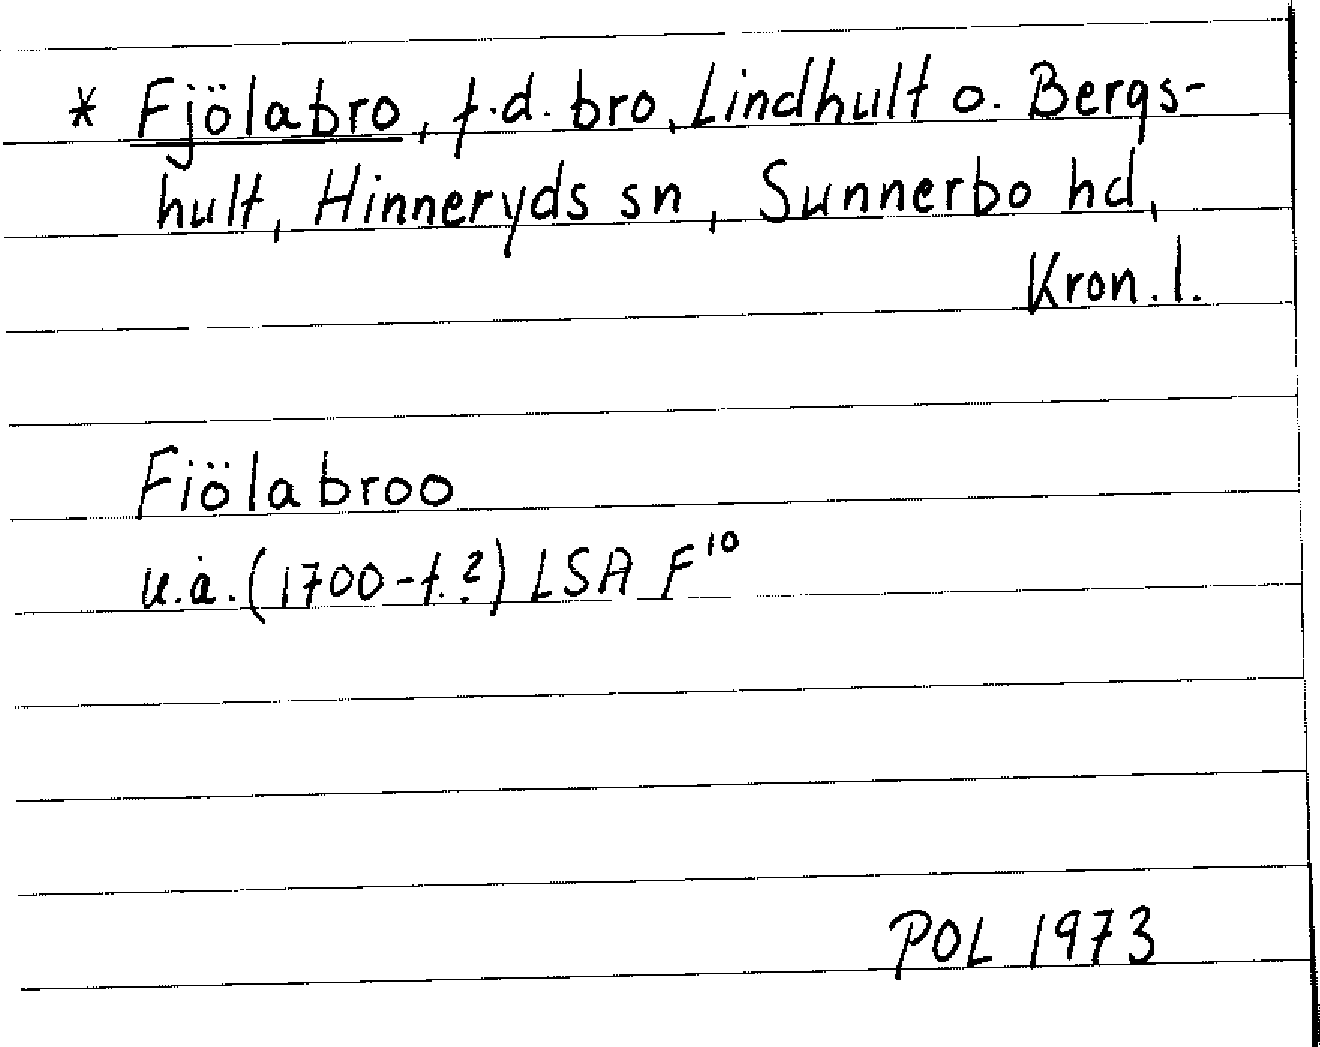 * Fjölabro, f.d. bro, Lindhult o. Bergs-
hult, Hinneryds sn, Sunnerbo hd,
Kron. l.
Fiölabroo
u.å. (1700-t.?) LSA F¹⁰
POL 1973